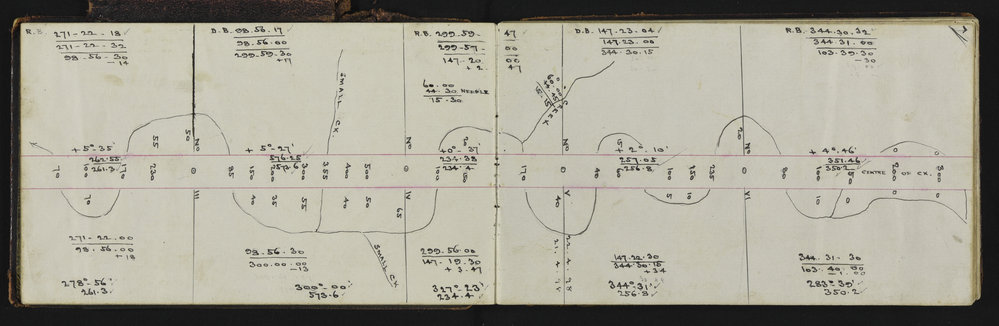 R.B. 271-22-18
271-22-32
98-56-30
-14
D.B. 98.56.17
98.56.00
299.59.30
+17
R.B. 299.59-47
299-57-00
147-20
+2.47
60.00
44.30 NEEDLE
15-30
D.B. 147.23.04
147.23.00
344-30.15
R.B. 344.30.32
344.31.00
103.39.30
-30
SMALL CK.
CREEK
+5°-35'
262.55
261.3
+5°-27'
576.25
573.6
+0°-37'
234.38
234.4
+2°.10'
257.05
256.8
+4°.46'
351.46
350.2
55
50
No
No
No
20
No
70
100
70
230
0
III
85
150
40
300
35
355
55
400
40
500
50
65
IV
100
150
170
0
V
40
40
100
150
10
5
230
0
VI
80
150
10
200
300
0
CENTRE OF CK.
SMALL CK
271-22.00
98.56.00
+18
278°-56'
261.3
98.56.30
300.00.00
-13
300°-00'
573.6
299.56.00
147-19.30
+3.47
327°-23'
234.4
147.22.30
344.30.15
+34
344°-31'
256.8
344.31-30
103.40.00
283°-39'
350.2